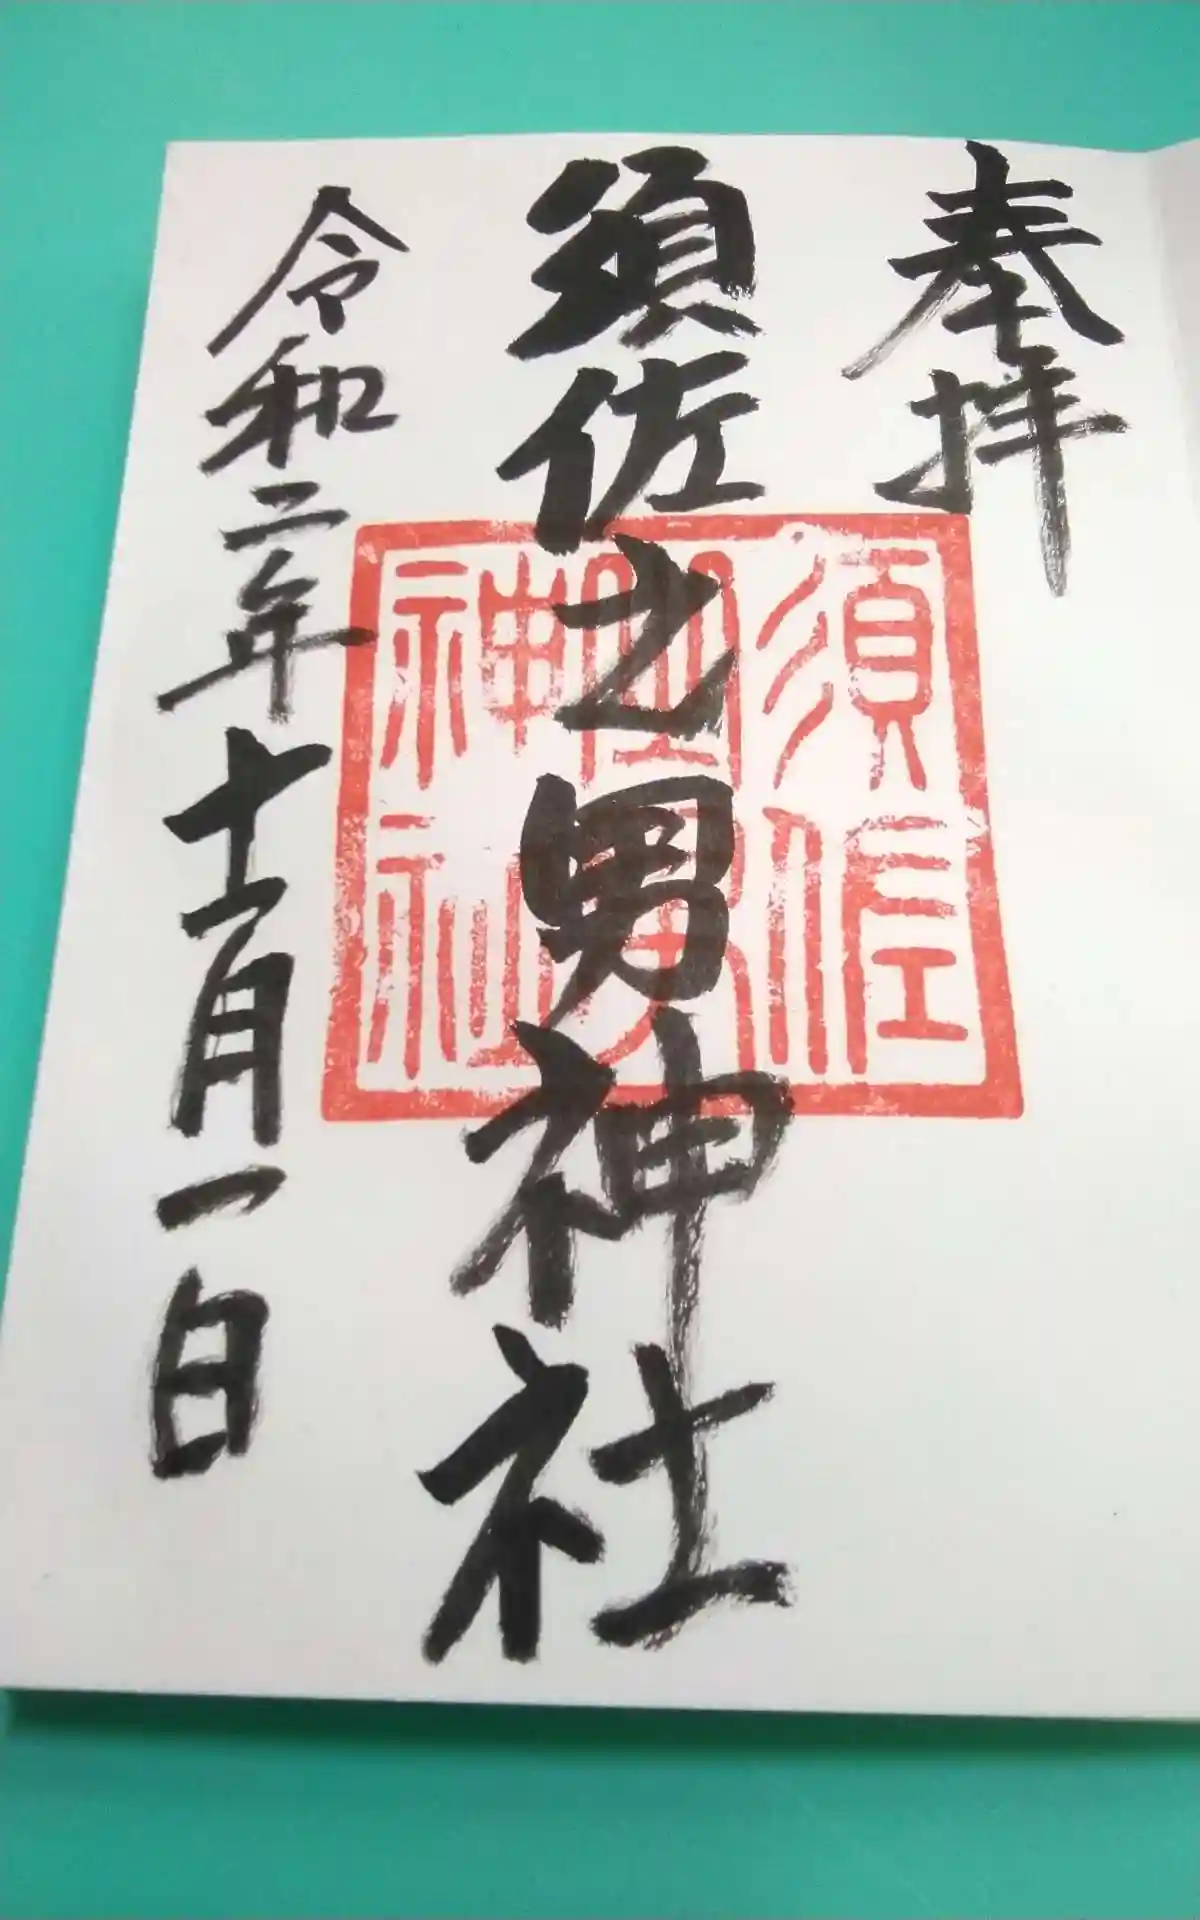 奉拝
須佐之男神社
令和二年十一月一日
須佐
之男
神社